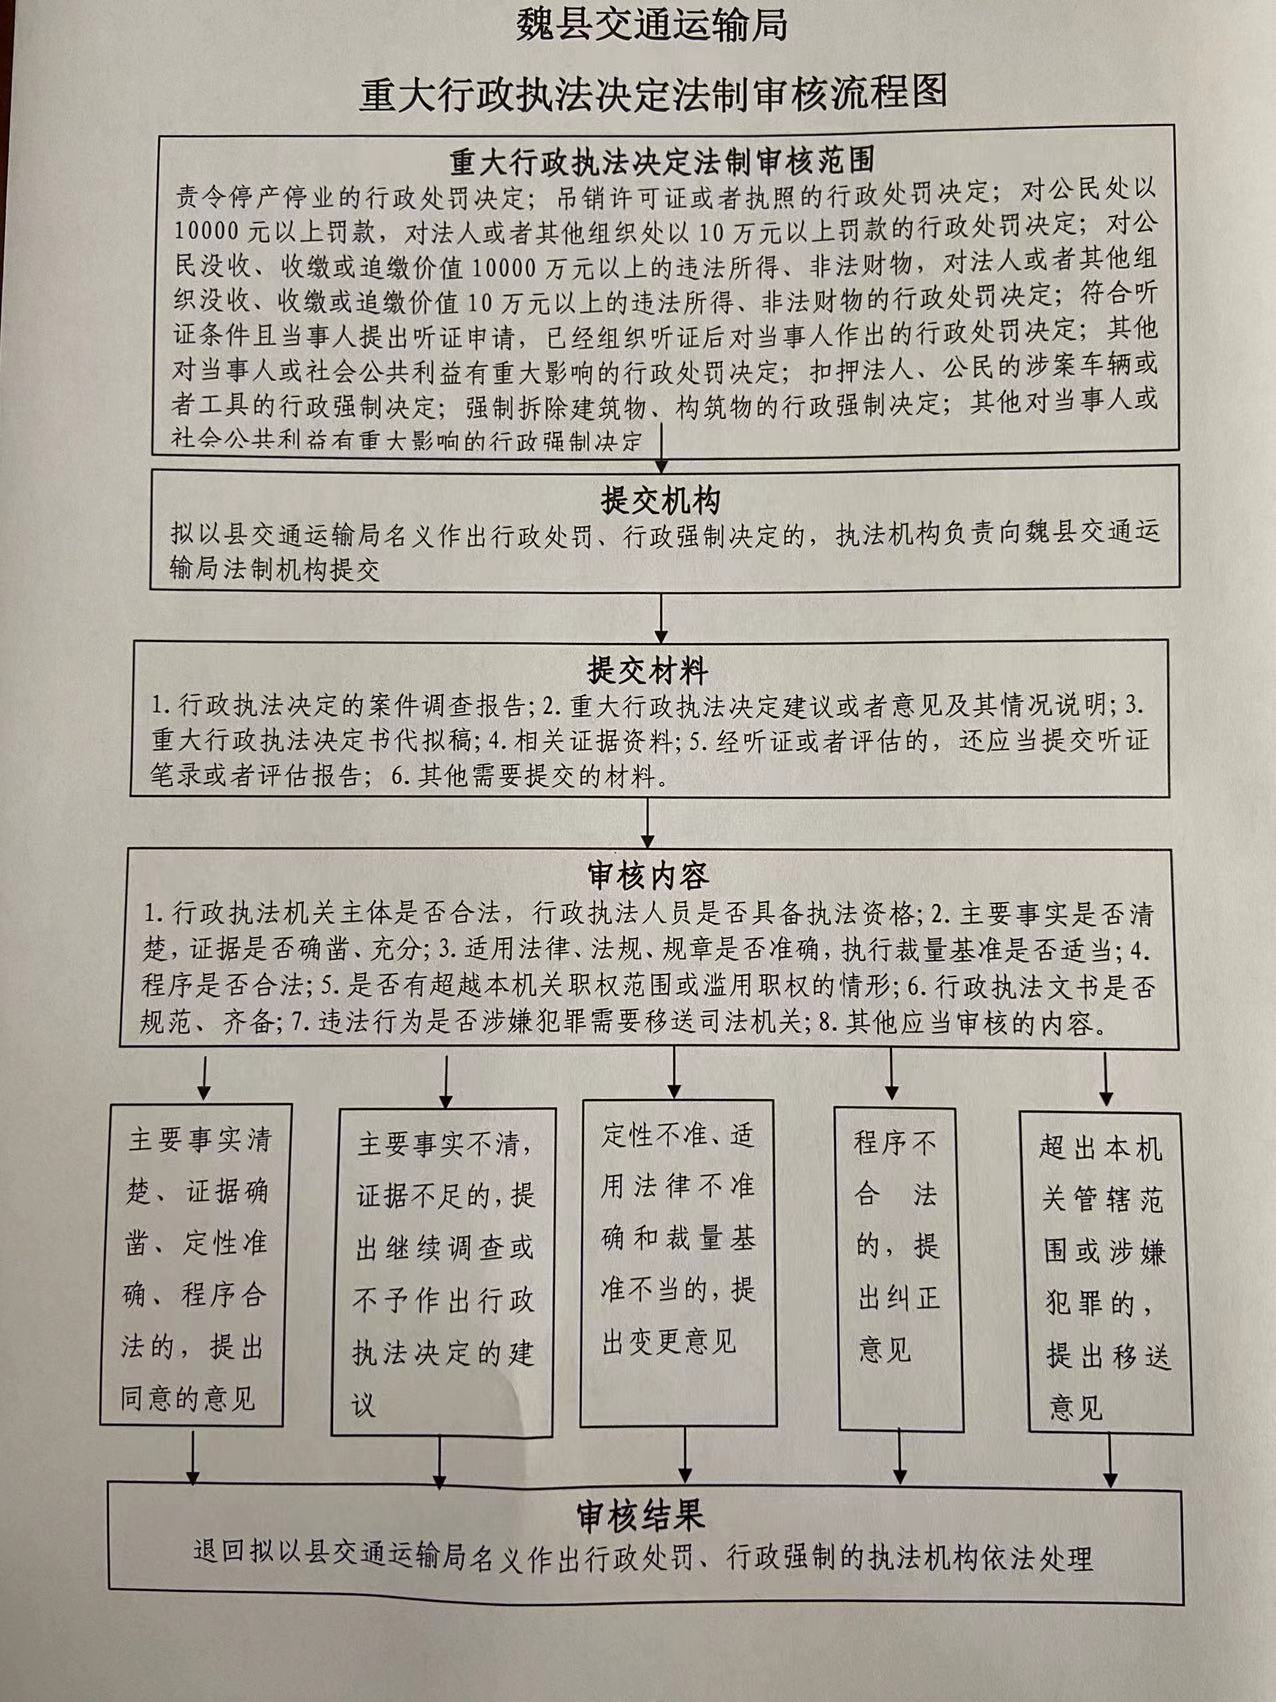 魏县交通运输局
重大行政执法决定法制审核流程图
重大行政执法决定法制审核范围
责令停产停业的行政处罚决定；吊销许可证或者执照的行政处罚决定；对公民处以
10000 元以上罚款，对法人或者其他组织处以 10 万元以上罚款的行政处罚决定；对公
民没收、收缴或追缴价值 10000 万元以上的违法所得、非法财物，对法人或者其他组
织没收、收缴或追缴价值 10 万元以上的违法所得、非法财物的行政处罚决定；符合听
证条件且当事人提出听证申请，已经组织听证后对当事人作出的行政处罚决定；其他
对当事人或社会公共利益有重大影响的行政处罚决定；扣押法人、公民的涉案车辆或
者工具的行政强制决定；强制拆除建筑物、构筑物的行政强制决定；其他对当事人或
社会公共利益有重大影响的行政强制决定
提交机构
拟以县交通运输局名义作出行政处罚、行政强制决定的，执法机构负责向魏县交通运
输局法制机构提交
提交材料
1. 行政执法决定的案件调查报告；2. 重大行政执法决定建议或者意见及其情况说明；3.
重大行政执法决定书代拟稿；4. 相关证据资料；5. 经听证或者评估的，还应当提交听证
笔录或者评估报告；6. 其他需要提交的材料。
审核内容
1. 行政执法机关主体是否合法，行政执法人员是否具备执法资格；2. 主要事实是否清
楚，证据是否确凿、充分；3. 适用法律、法规、规章是否准确，执行裁量基准是否适当；4.
程序是否合法；5. 是否有超越本机关职权范围或滥用职权的情形；6. 行政执法文书是否
规范、齐备；7. 违法行为是否涉嫌犯罪需要移送司法机关；8. 其他应当审核的内容。
主要事实清
楚、证据确
凿、定性准
确、程序合
法的，提出
同意的意见
主要事实不清，
证据不足的，提
出继续调查或
不予作出行政
执法决定的建
议
定性不准、适
用法律不准
确和裁量基
准不当的，提
出变更意见
程序不
合法
的，提
出纠正
意见
超出本机
关管辖范
围或涉嫌
犯罪的，
提出移送
意见
审核结果
退回拟以县交通运输局名义作出行政处罚、行政强制的执法机构依法处理